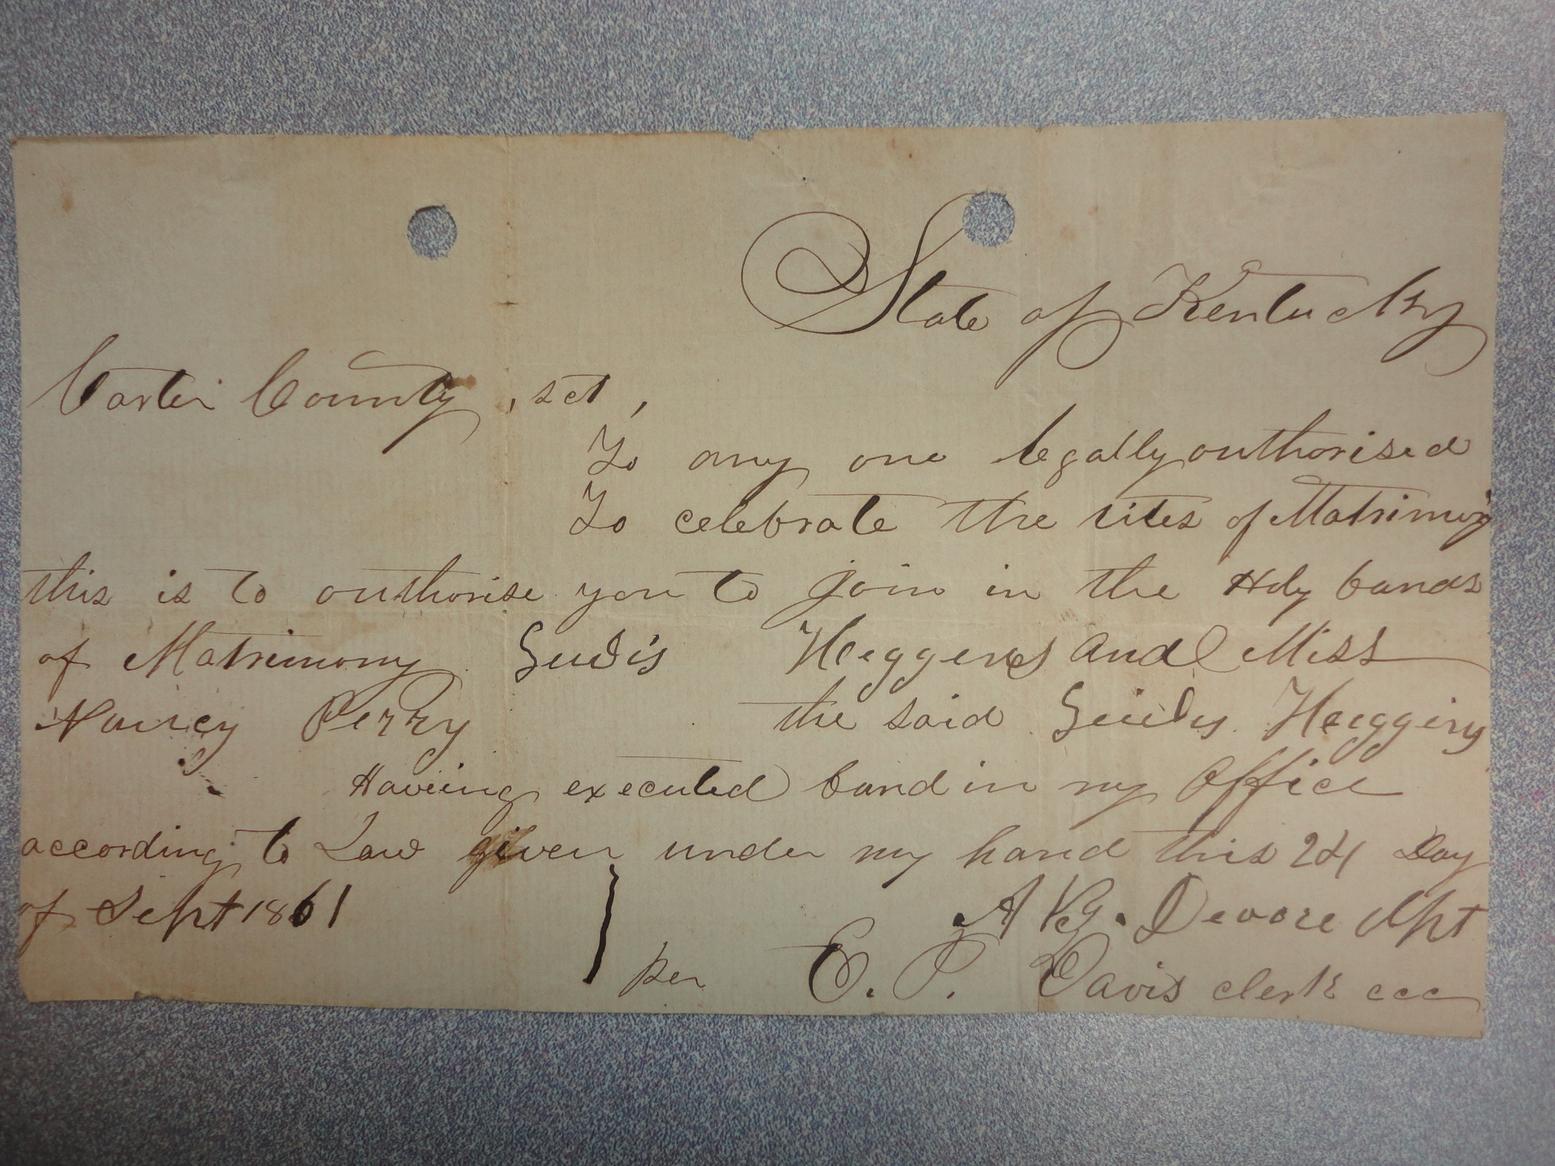 State of Kentucky
Carter County, sct,
To any one legally authorised
To celebrate the rites of Matrimony
this is to authorise you to join in the Holy bands
of Matrimony Heggens and Miss
Nancy Perry the said Heggins
Haveing executed band in my Office
according to Law given under my hand this 24 Day
of Sept 1861 A Devore dpt
per E. P. Davis clerk ccc